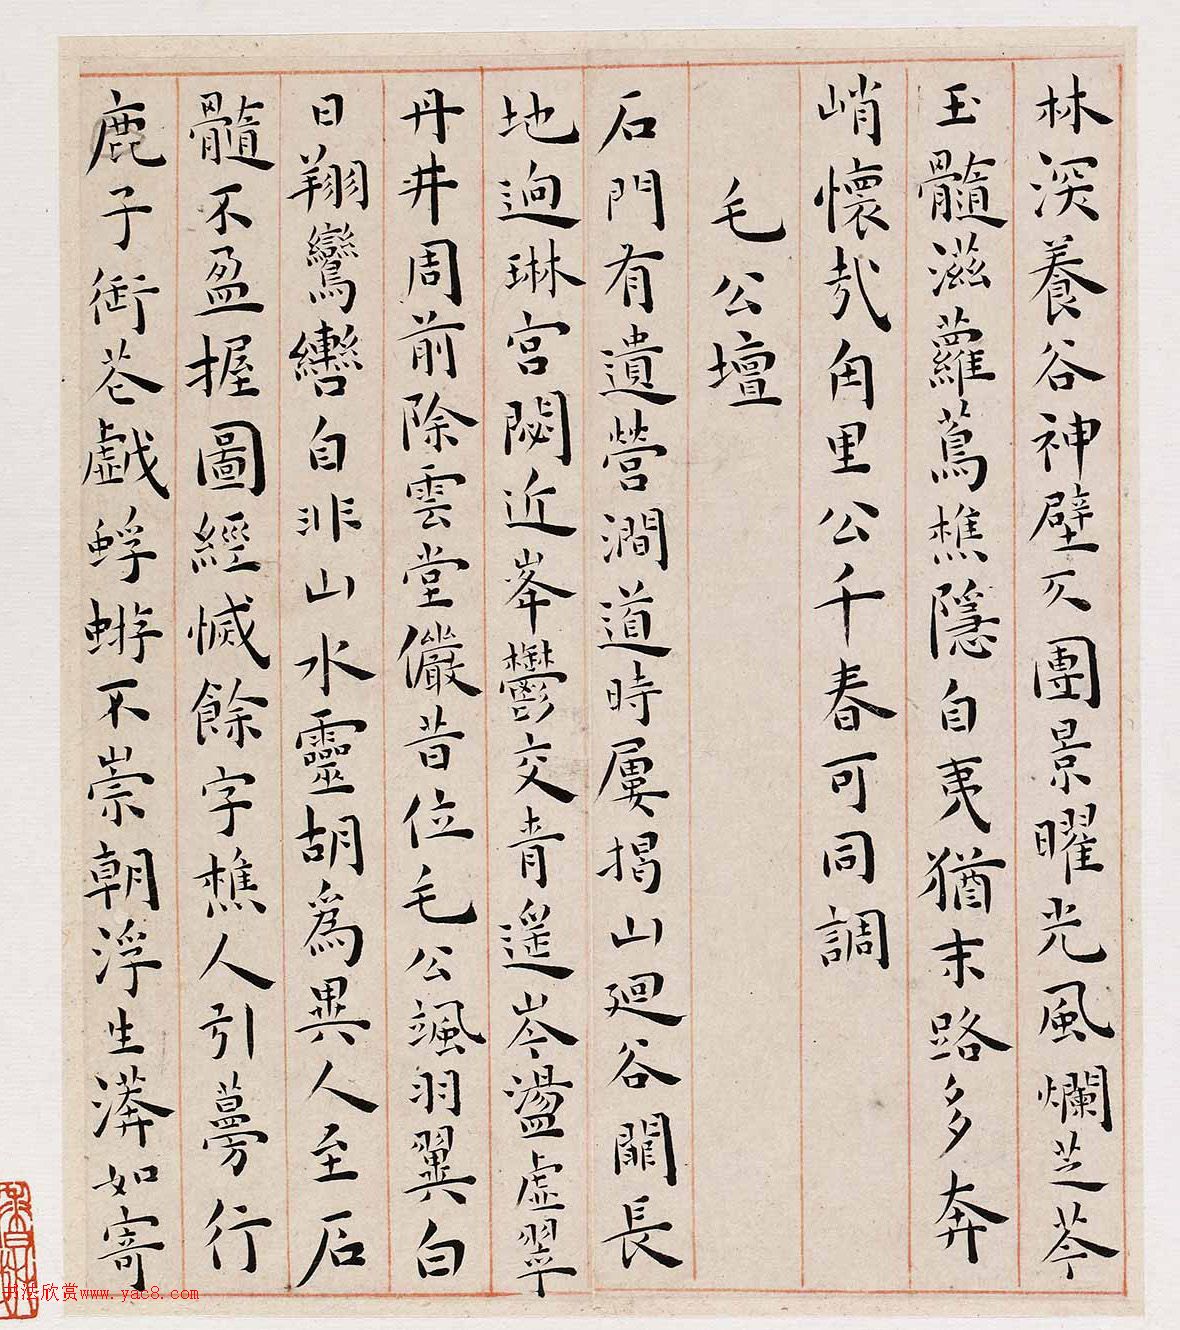 林深養谷神壁仄團景曜光風爛芝苓
玉髓滋蘿蔦樵隱自夷猶末路多奔
峭懷哉甪里公千春可同調
毛公壇
石門有遺營澗道時屢揭山廻谷閈長
地逈琳宮閟近峯鬱交青遥岑盪虛翠
丹井周前除雲堂儼昔位毛公颯羽翼白
日翔鸞轡自非山水靈胡為異人至石
髓不盈握圖經憾餘字樵人引蔓旁行
鹿子銜苍戲蜉蝣不崇朝浮生漭如寄
书法欣赏www.yac8.com